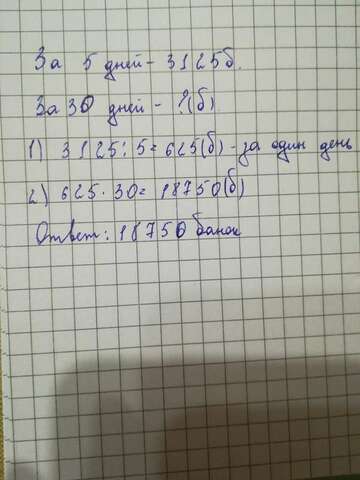 За 5 дней - 3125б.
За 30 дней - ?(б)
1) 3125:5=625(б) - за один день
2) 625·30=18750(б)
Ответ: 18750 банок